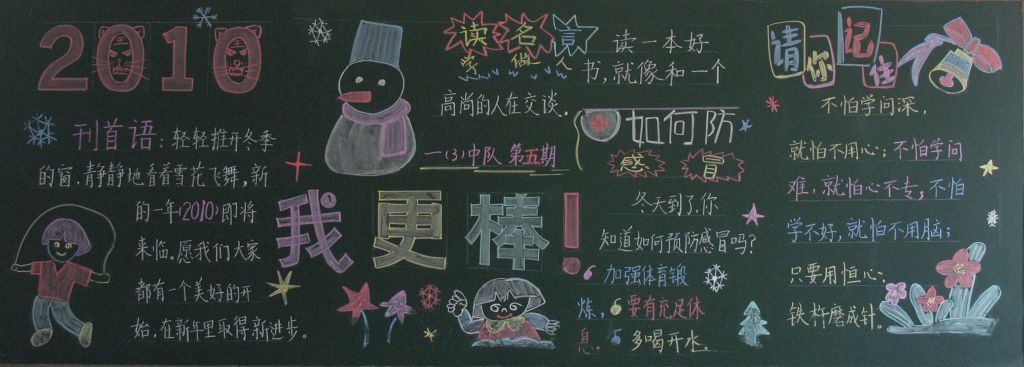 2010
刊首语:轻轻推开冬季
的窗,静静地看着雪花飞舞,新
的一年(2010)即将
来临。愿我们大家
都有一个美好的开
始,在新年里取得新进步。
读名言
学做人
读一本好
书,就像和一个
高尚的人在交谈。
一(3)中队 第五期
我更棒!
如何防
感冒
冬天到了,你
知道如何预防感冒吗?
加强体育锻
炼,要有充足休
息,多喝开水。
请你记住
不怕学问深,
就怕不用心;不怕学问
难,就怕心不专;不怕
学不好,就怕不用脑;
只要用恒心,
铁杵磨成针。